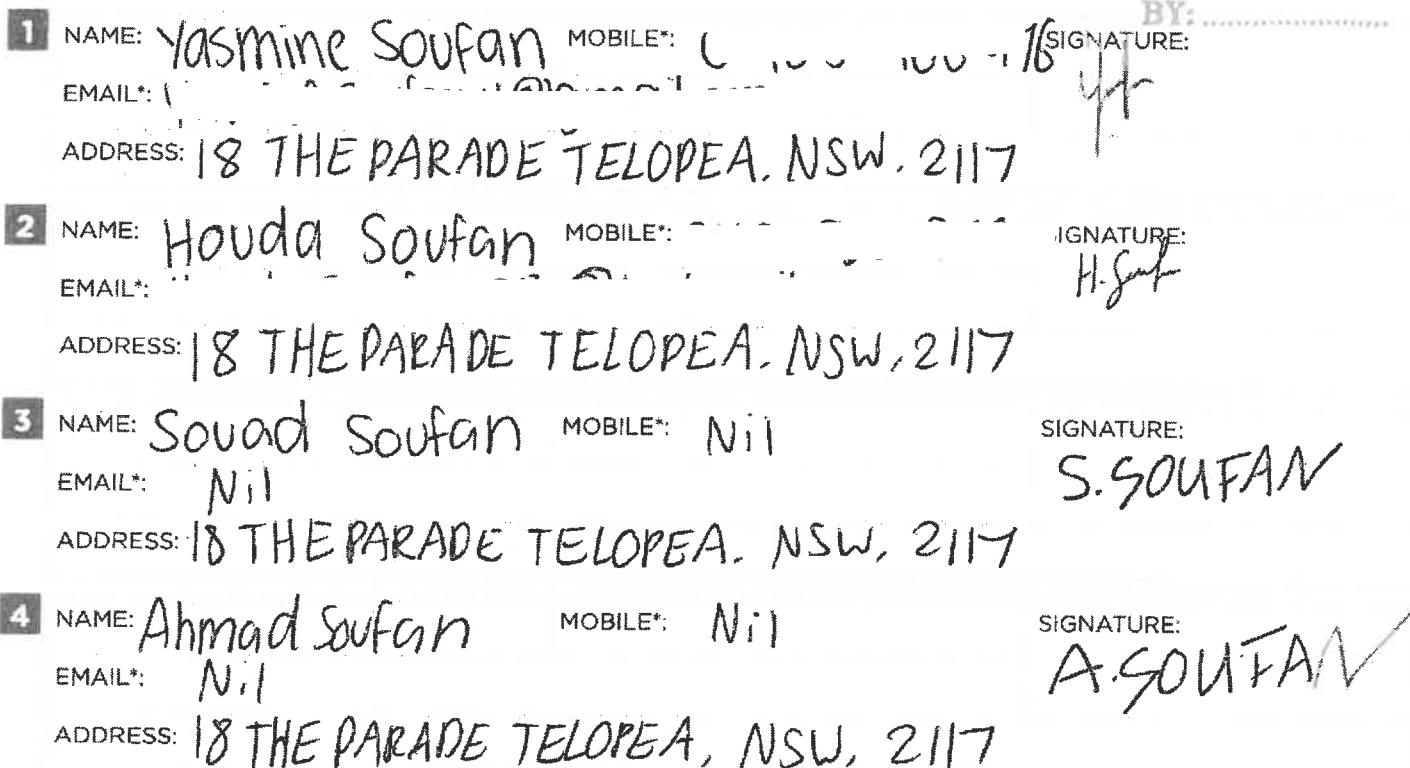 BY:
1 NAME: Yasmine Soufan MOBILE*: 16 SIGNATURE:
EMAIL*:
ADDRESS: 18 THE PARADE TELOPEA. NSW. 2117
2 NAME: Houda Soufan MOBILE*: IGNATURE:
H. Souf
EMAIL*:
ADDRESS: 18 THE PARADE TELOPEA. NSW, 2117
3 NAME: Souad Soufan MOBILE*: Nil SIGNATURE:
EMAIL*: Nil S. SOUFAN
ADDRESS: 18 THE PARADE TELOPEA. NSW, 2117
4 NAME: Ahmad Soufan MOBILE*: Nil SIGNATURE:
EMAIL*: Nil A. SOUFAN
ADDRESS: 18 THE PARADE TELOPEA, NSW, 2117